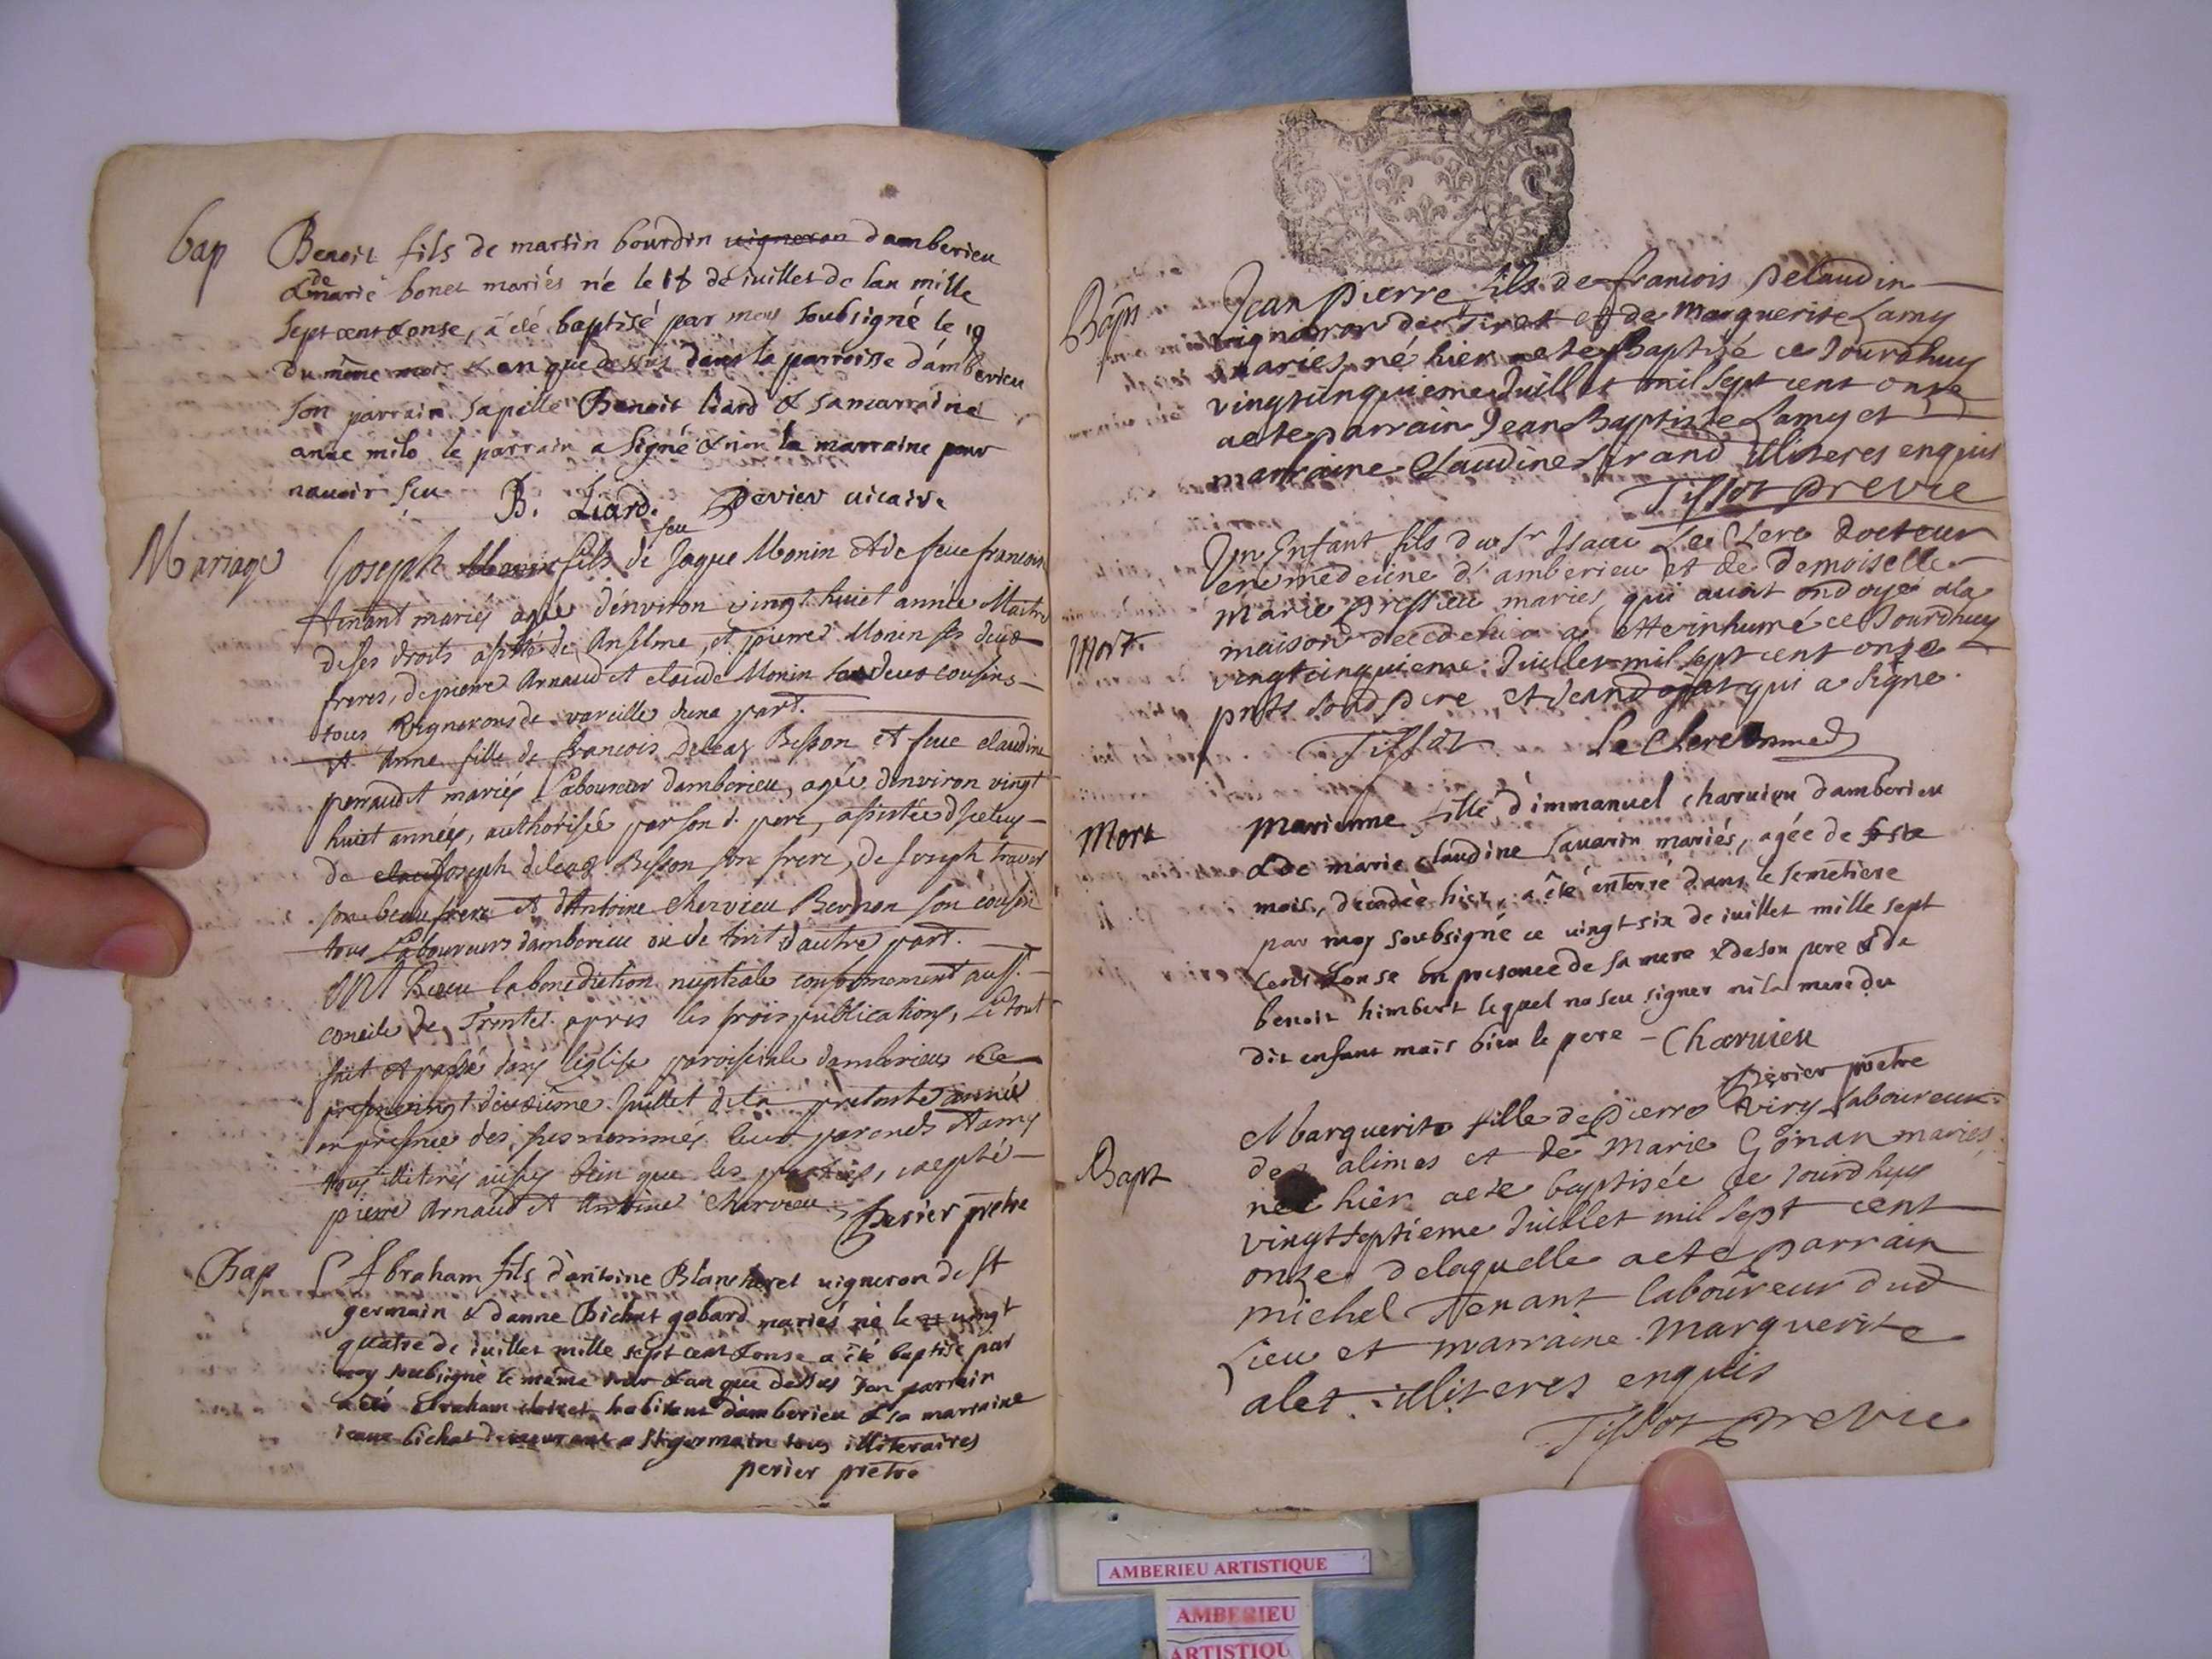 bap
Benoit fils de martin bourdin vigneron damberieu
& de marie bonet mariés né le 18 de iuillet de lan mille
sept cent & onse, a été baptisé par moy soubsigné le 19
du même mois & an que dessus dans la parroisse damberieu
son parrain sapelle Benoit liard & sa marraine
anne milo le parrain a signé & non la marraine pour
navoir sçu B. Liard. Perier vicaire
Mariage
Joseph fils de feu Jaque Monin et de feue francoise
tenant mariés agé denviron vingt huict année Maitre
de ses droits assisté de Anselme, et pierre Monin ses deux
freres, de pierre Arnaud et claude Monin ses deux cousins
tous vignerons de vareille dune part.
et Anne fille de francois Deleaz Besson et feue claudine
perraudet mariés Laboureur damberieu, agée denviron vingt
huict années, authorisée par son d. pere, assistée diceluy
de Joseph deleaz Besson son frere, de Joseph travet
son beau frere et dAntoine chervieu Bernon son cousin
tous Laboureurs damberieu ou de tiret dautre part.
ONt Receu la benediction nuptiale conformement au st.
concile de Trente. apres les trois publications, Le tout
fait et passé dans leglise paroissiale damberieu ce
vingt deuxieme Juillet de la presente année
en presence des susnommés leurs parends et amys
tous illiterés aussy bien que les parties, excepté
pierre Arnaud et Antoine Chervieu. perier prêtre
Bap
Abraham fils dantoine Blancheret vigneron de st
germain & danne Bichat gobard mariés né le vingt
quatre de iuillet mille sept cent & onse a été baptisé par
moy soubsigné le même iour & an que dessus son parrain
a été abraham habitant damberieu & sa marraine
ieanne bichat demeurant a st germain tous illiteraires
perier prêtre
Bap
Jean Pierre fils de francois Delaudin
vigneron de Tiret et de Marguerite Lamy
maries, né hier aete Baptisé ce Jourdhuy
vingtcinquieme Juillet mil sept cent onze
aete parrain Jean Baptiste Lamy et
marraine Claudine ferand illiteres enquis
Tissot prevre
Mort.
Un Enfant fils du Sr Isaac Le Clerc docteur
en medecine d'amberieu et de Demoiselle
marie pressieu maries, qui avoit ondoyé ala
maison a ette inhumé ce Jourdhuy
vingtcinquieme Juillet mil sept cent onze
pnts sond pere et Jean qui a signe
Tissot Le Clerc
Mort
marianne fille d'immanuel charvieu damberieu
& de marie claudine savarin mariés, agée de six
mois, decedée hier, a été enterré dans le semetiere
par moy soubsigné ce vingt six de iuillet mille sept
cent & onse en presence de sa mere & de son pere & de
benoit himbert lequel na sçu signer ni la mere du
dit enfant mais bien le pere - Charvieu
perier prêtre
Bapt
Marguerite fille de Pierre Viry Laboureur
des alimes et de Marie Gonan maries
née hier aete baptisée ce Jourdhuy
vingtseptieme Juillet mil sept cent
onze delaquelle aete parrain
michel tenant laboureur dud
Lieu et marraine Marguerite
alet illiteres enquis
Tissot prevre
AMBERIEU ARTISTIQUE
AMBERIEU
ARTISTIQU